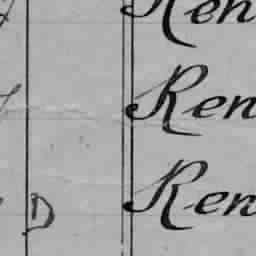 Ren
Ren
D Ren